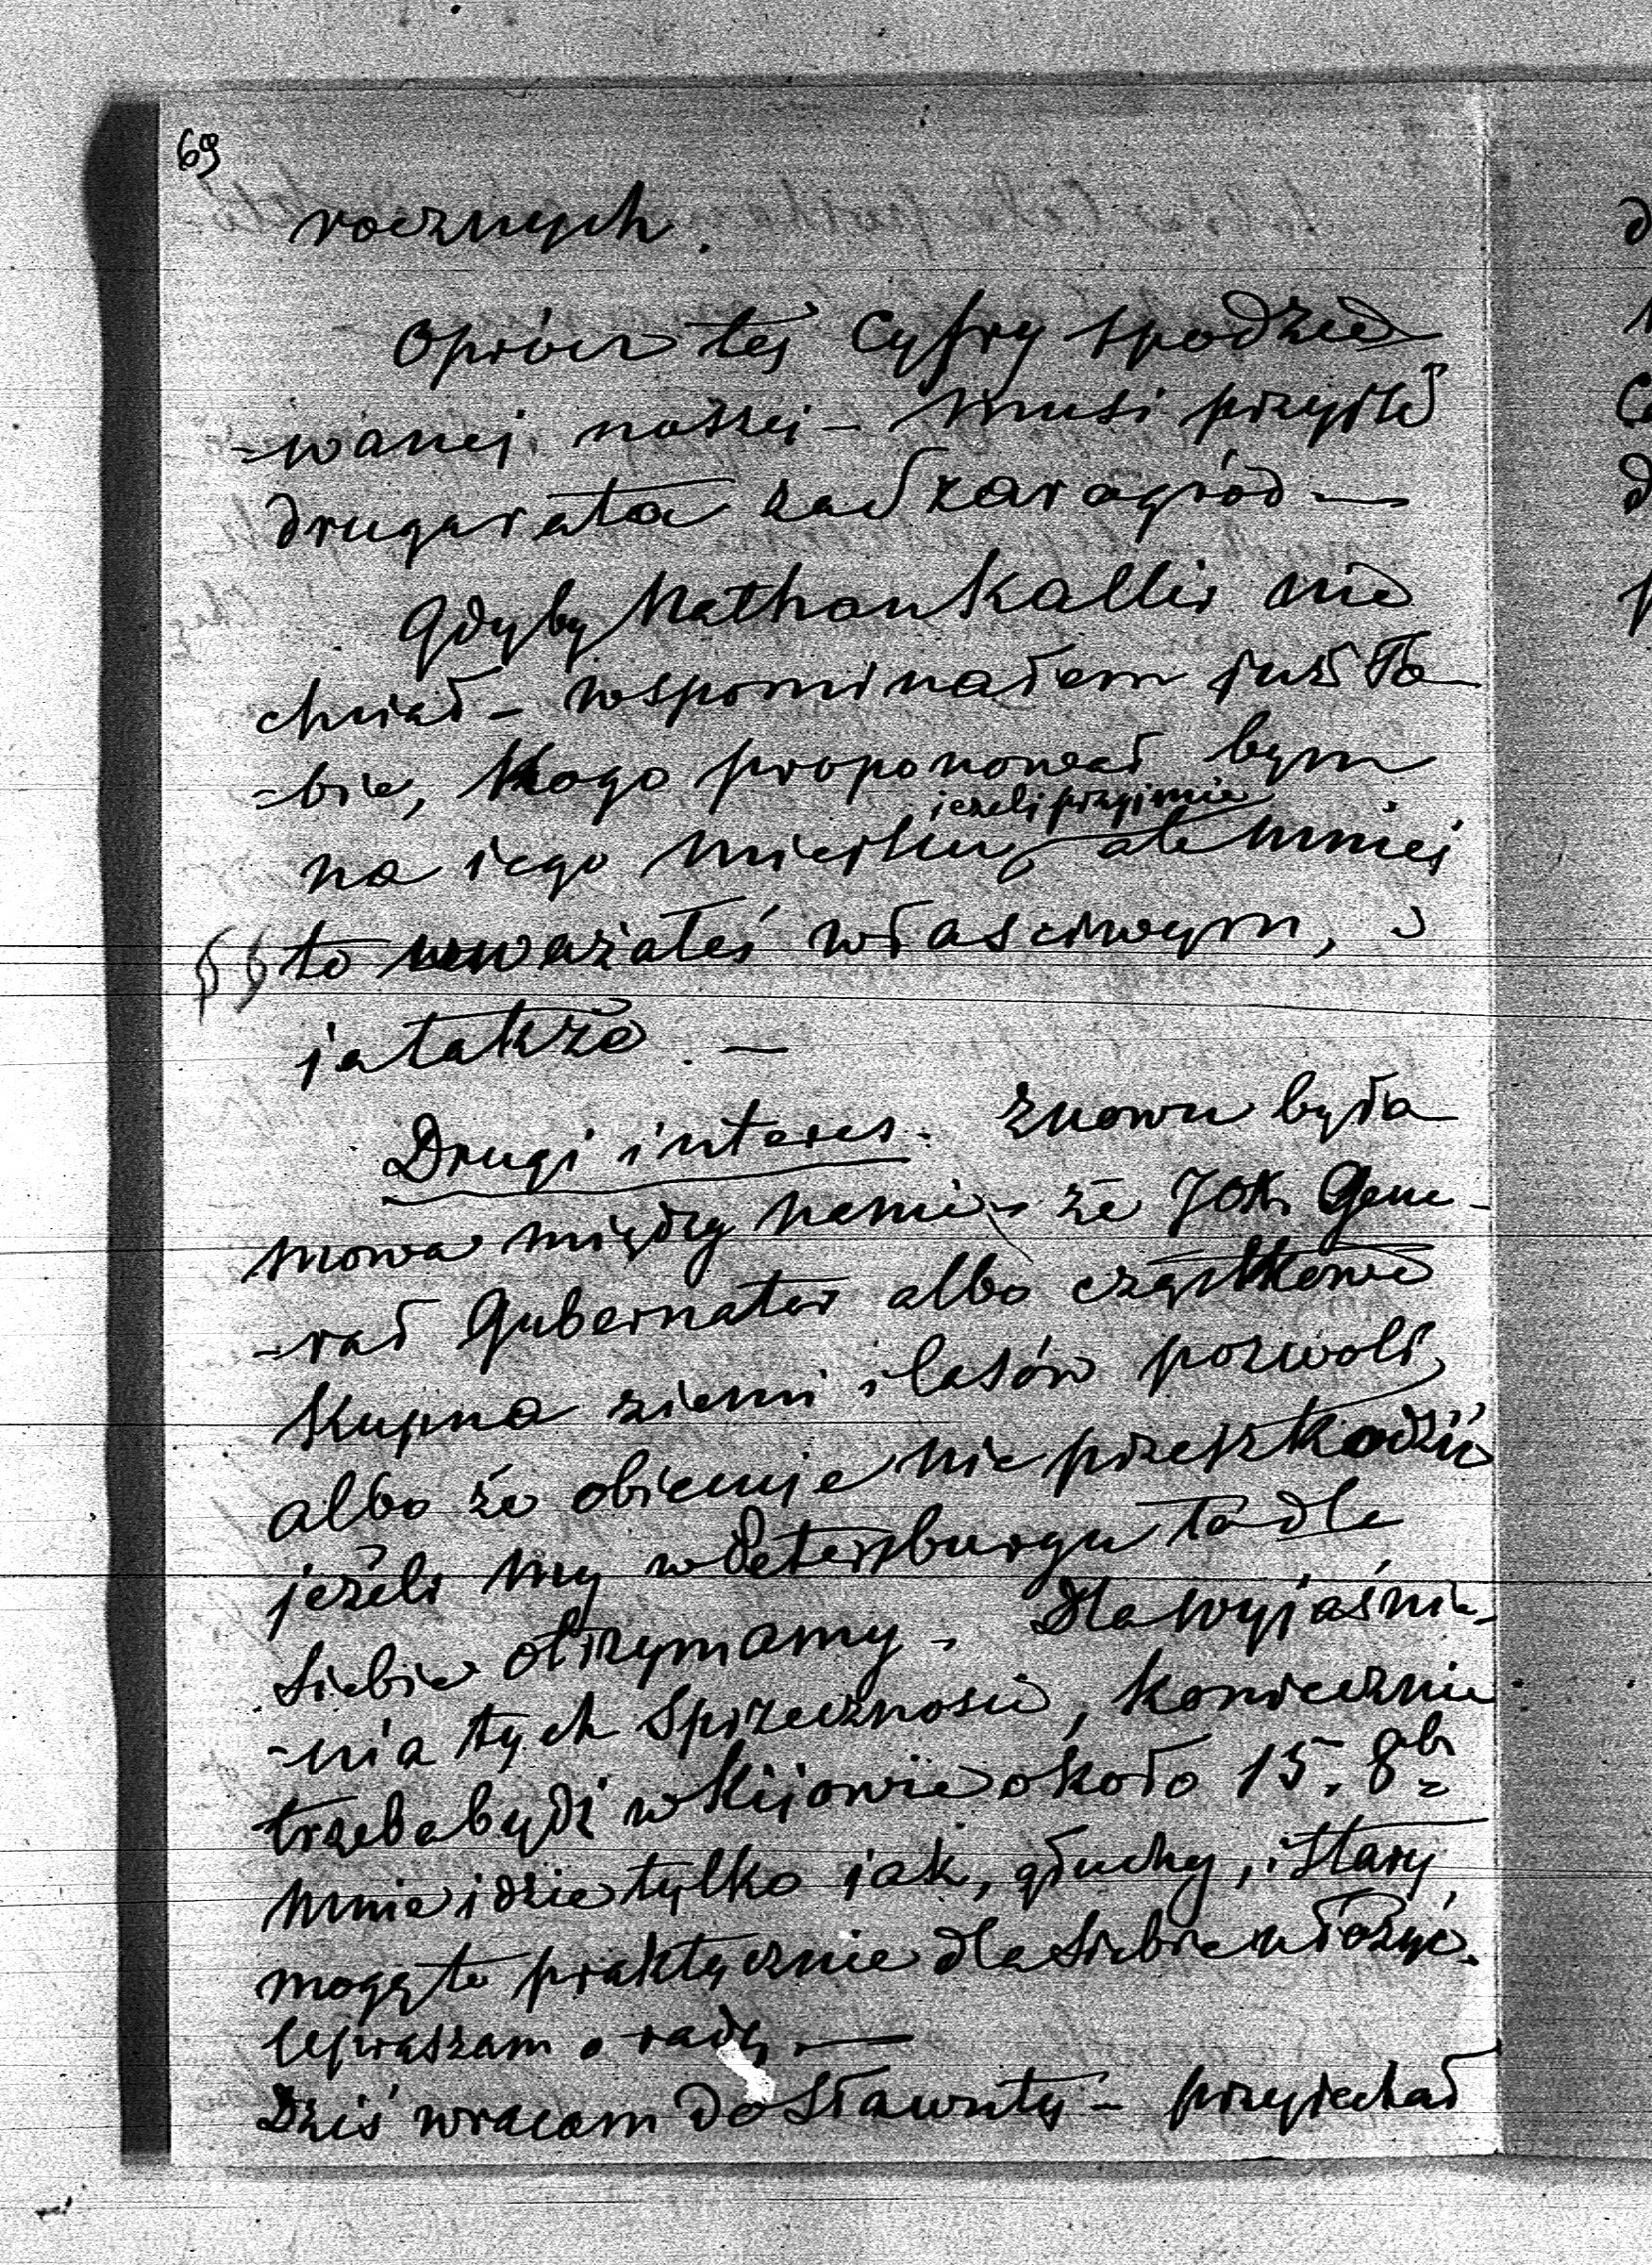 69
rocznych.
Oprócz tej Cyfry spodzie
=wanej naszej - musi przyjść
druga rata za Szaragród —
Gdyby Nathan Kallir nie
chciał - wspominałem już To
=bie, kogo proponował bym
jeżeli przyjmie
na iego miejscu, ale mniej
to uważałeś właściwym, i
ja także. —
Drugi interes. Znowu była
mowa między nami - że JOX. Gene-
-rał Gubernator albo cząstkowe
Kupna ziemi i lasów pozwoli,
albo że obiecuje nie przeszkodzić
jeżeli my w Petersburgu to dla
siebie otrzymamy. Dla wyjaśnie-
-nia tych Sprzeczności, koniecznie
trzeba bydź w Kijowie około 15. 8br
mnie idzie tylko jak, głuchy, i Stary
mogę to praktycznie dla siebie ułożyć.
Upraszam o radę. —
Dziś wracam do Sławuty - przyjechał